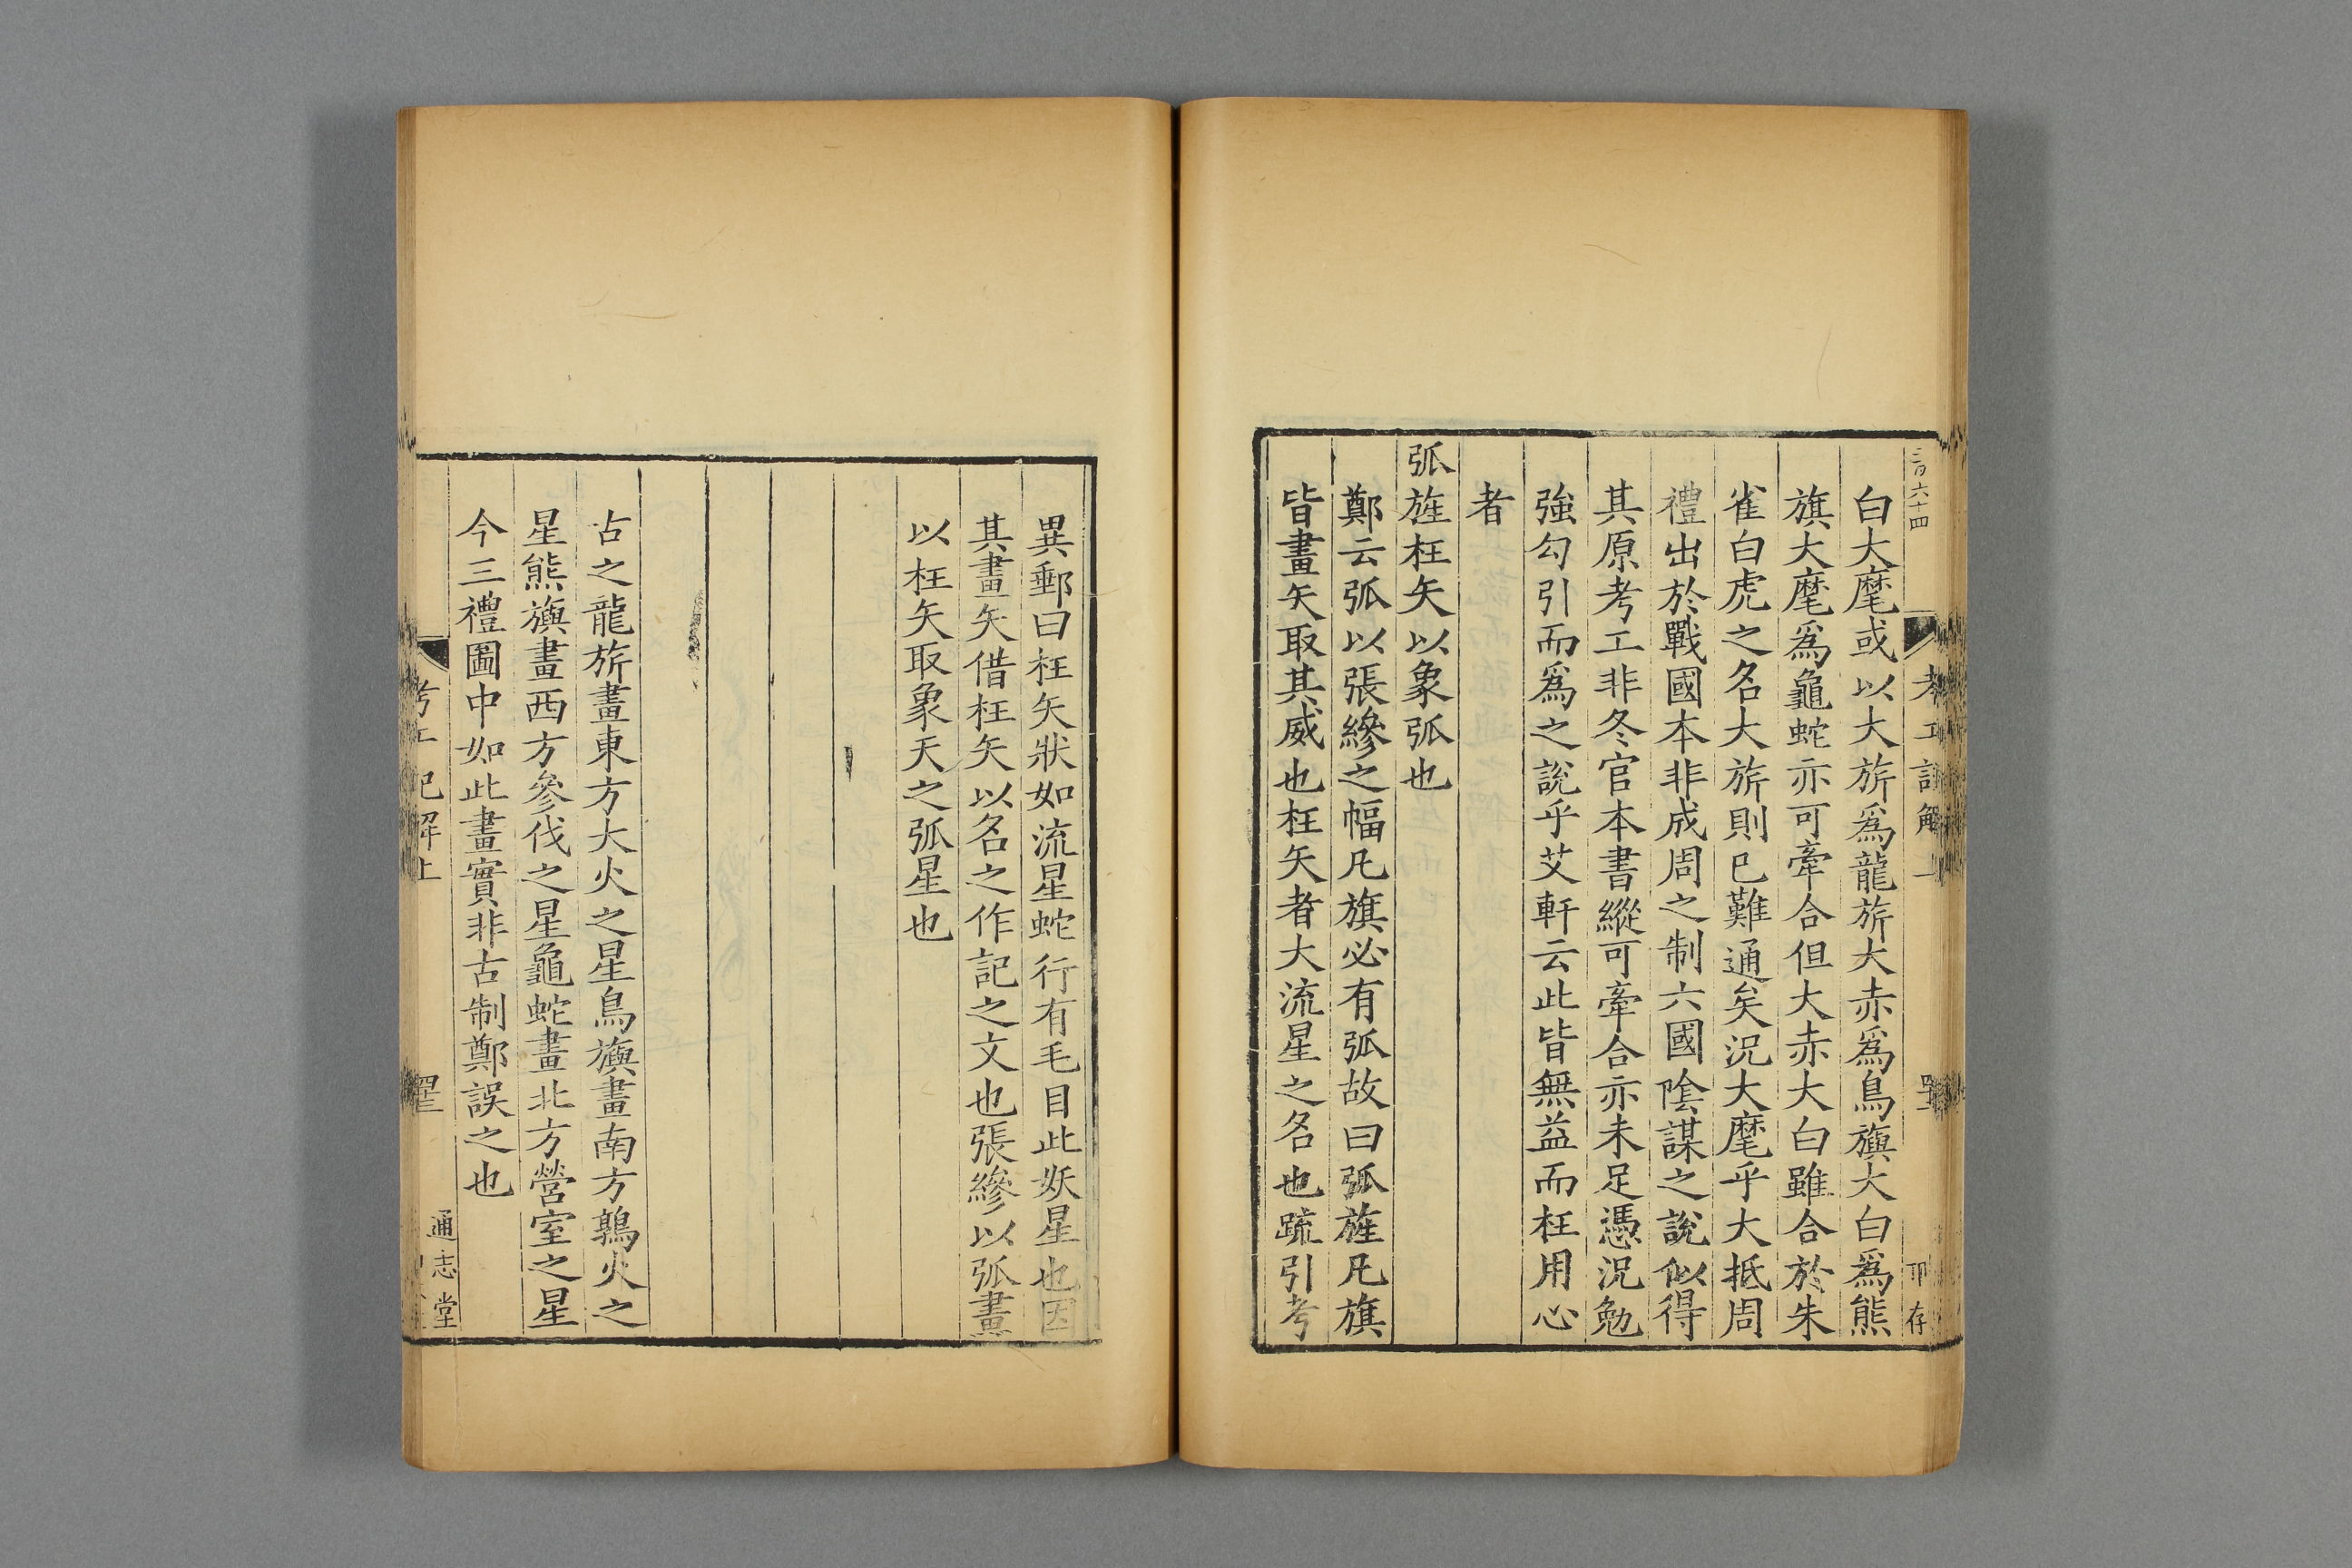 白大麾或以大旂爲龍旂大赤爲鳥旟大白爲熊
旗大麾爲龜蛇亦可牽合但大赤大白雖合於朱
雀白虎之名大旂則已難通矣況大麾乎大抵周
禮出於戰國本非成周之制六國陰謀之說似得
其原考工非冬官本書縱可牽合亦未足憑況勉
強勾引而爲之說乎艾軒云此皆無益而枉用心
者
弧旌枉矢以象弧也
鄭云弧以張縿之幅凡旗必有弧故曰弧旌凡旗
皆畫矢取其威也枉矢者大流星之名也疏引考
異郵曰枉矢狀如流星蛇行有毛目此妖星也因
其畫矢借枉矢以名之作記之文也張縿以弧畫
以枉矢取象天之弧星也
古之龍旂畫東方大火之星鳥旟畫南方鶉火之
星熊旟畫西方參伐之星龜蛇畫北方營室之星
今三禮圖中如此畫實非古制鄭誤之也
考工記解上
通志堂